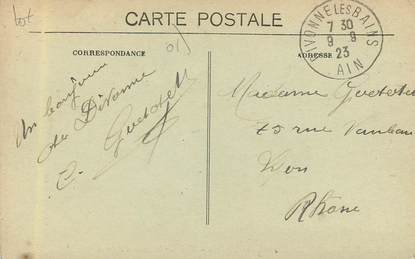 lot
CARTE POSTALE
CORRESPONDANCE
ADRESSE
DIVONNE LES BAINS
7 30
9 9
23
AIN
Un bonjour
de Divonne
Madame
75 rue Vauban
Lyon
Rhône